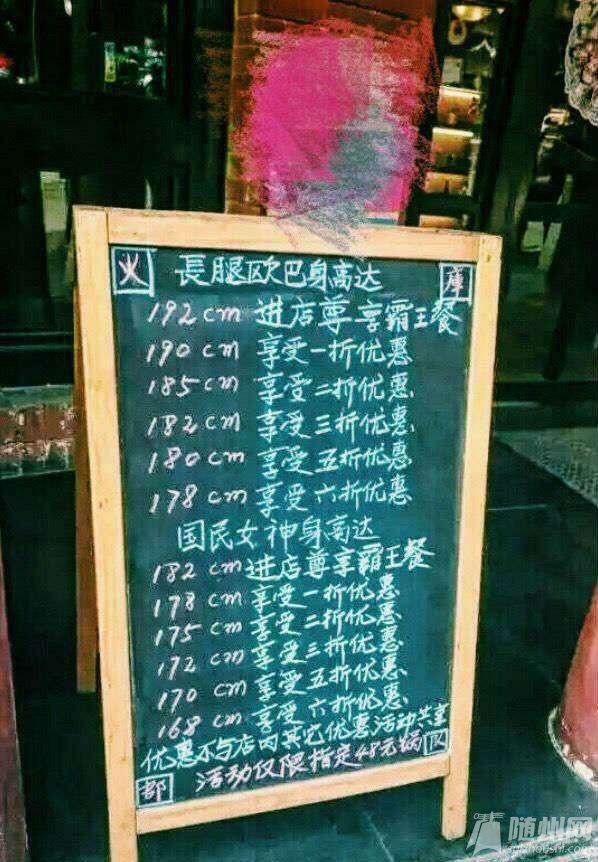 火 長腿欧巴身高达 庫
192cm 进店尊享霸王餐
190cm 享受一折优惠
185cm 享受二折优惠
182cm 享受三折优惠
180cm 享受五折优惠
178cm 享受六折优惠
国民女神身高达
182cm 进店尊享霸王餐
178cm 享受一折优惠
175cm 享受二折优惠
172cm 享受三折优惠
170cm 享受五折优惠
168cm 享受六折优惠
优惠不与店内其它优惠活动共享
部 活动仅限指定48元锅 队
随州网